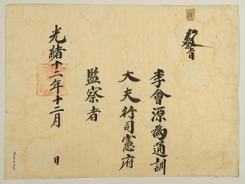 敎旨
李會源爲通訓
大夫行司憲府
監察者
光緖十二年十二月 日